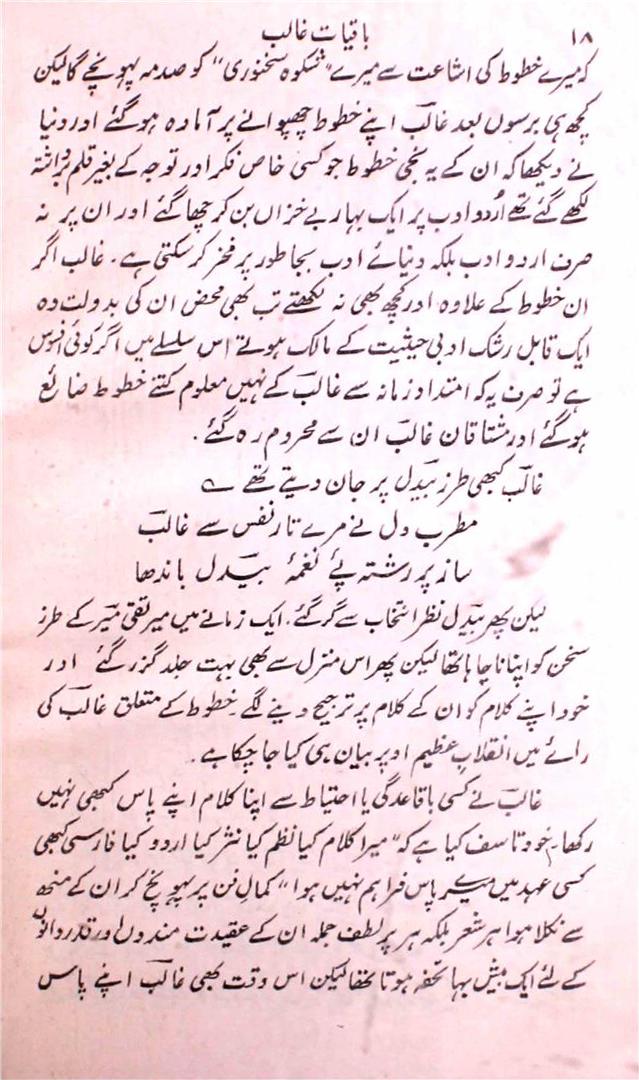 ۱۸ باقیات غالب
کہ میرے خطوط کی اشاعت سے میرے "شکوہ سخنوری" کو صدمہ پہونچے گا لیکن
کچھ ہی برسوں بعد غالبؔ اپنے خطوط چھپوانے پر آمادہ ہوگئے اور دنیا
نے دیکھا کہ ان کے یہ نجی خطوط جو کسی خاص فکر اور توجہ کے بغیر قلم برداشتہ
لکھے گئے تھے اُردو ادب پر ایک بہار بے خزاں بن کر چھا گئے اور ان پر نہ
صرف اردو ادب بلکہ دنیائے ادب بجا طور پر فخر کر سکتی ہے۔ غالب اگر
ان خطوط کے علاوہ اور کچھ بھی نہ لکھتے تب بھی محض ان کی بدولت وہ
ایک قابل رشک ادبی حیثیت کے مالک ہوتے اس سلسلے میں اگر کوئی افسوس
ہے تو صرف یہ کہ امتداد زمانہ سے غالبؔ کے نہیں معلوم کتنے خطوط ضائع
ہوگئے اور مشتاقان غالبؔ ان سے محروم رہ گئے۔
غالبؔ کبھی طرز بیدلؔ پر جان دیتے تھے ؎
مطرب دل نے مرے تار نفس سے غالبؔ
ساز پر رشتہ پئے نغمۂ بیدلؔ باندھا
لیکن پھر بیدلؔ نظر انتخاب سے گر گئے۔ ایک زمانے میں میر تقی میرؔ کے طرز
سخن کو اپنانا چاہا تھا لیکن پھر اس منزل سے بھی بہت جلد گزر گئے اور
خود اپنے کلام کو ان کے کلام پر ترجیح دینے لگے۔ خطوط کے متعلق غالبؔ کی
رائے میں انقلابِ عظیم اوپر بیان ہی کیا جا چکا ہے۔
غالبؔ نے کسی باقاعدگی یا احتیاط سے اپنا کلام اپنے پاس کبھی نہیں
رکھا۔ خود تاسف کیا ہے کہ "میرا کلام کیا نظم کیا نثر کیا اردو کیا فارسی کبھی
کسی عہد میں میرے پاس فراہم نہیں ہوا" کمال فن پر پہونچ کر ان کے منھ
سے نکلا ہوا ہر شعر بلکہ ہر پر لطف جملہ ان کے عقیدت مندوں اور قدردانوں
کے لئے ایک بیش بہا تحفہ ہوتا تھا لیکن اس وقت بھی غالبؔ اپنے پاس